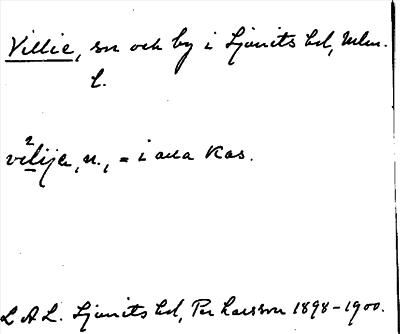 Villie, sn och by i Ljunits hd, Mlm.
l.
vèlije, n., = i alla kas.
L A L. Ljunits hd, Per Larsson 1898-1900.